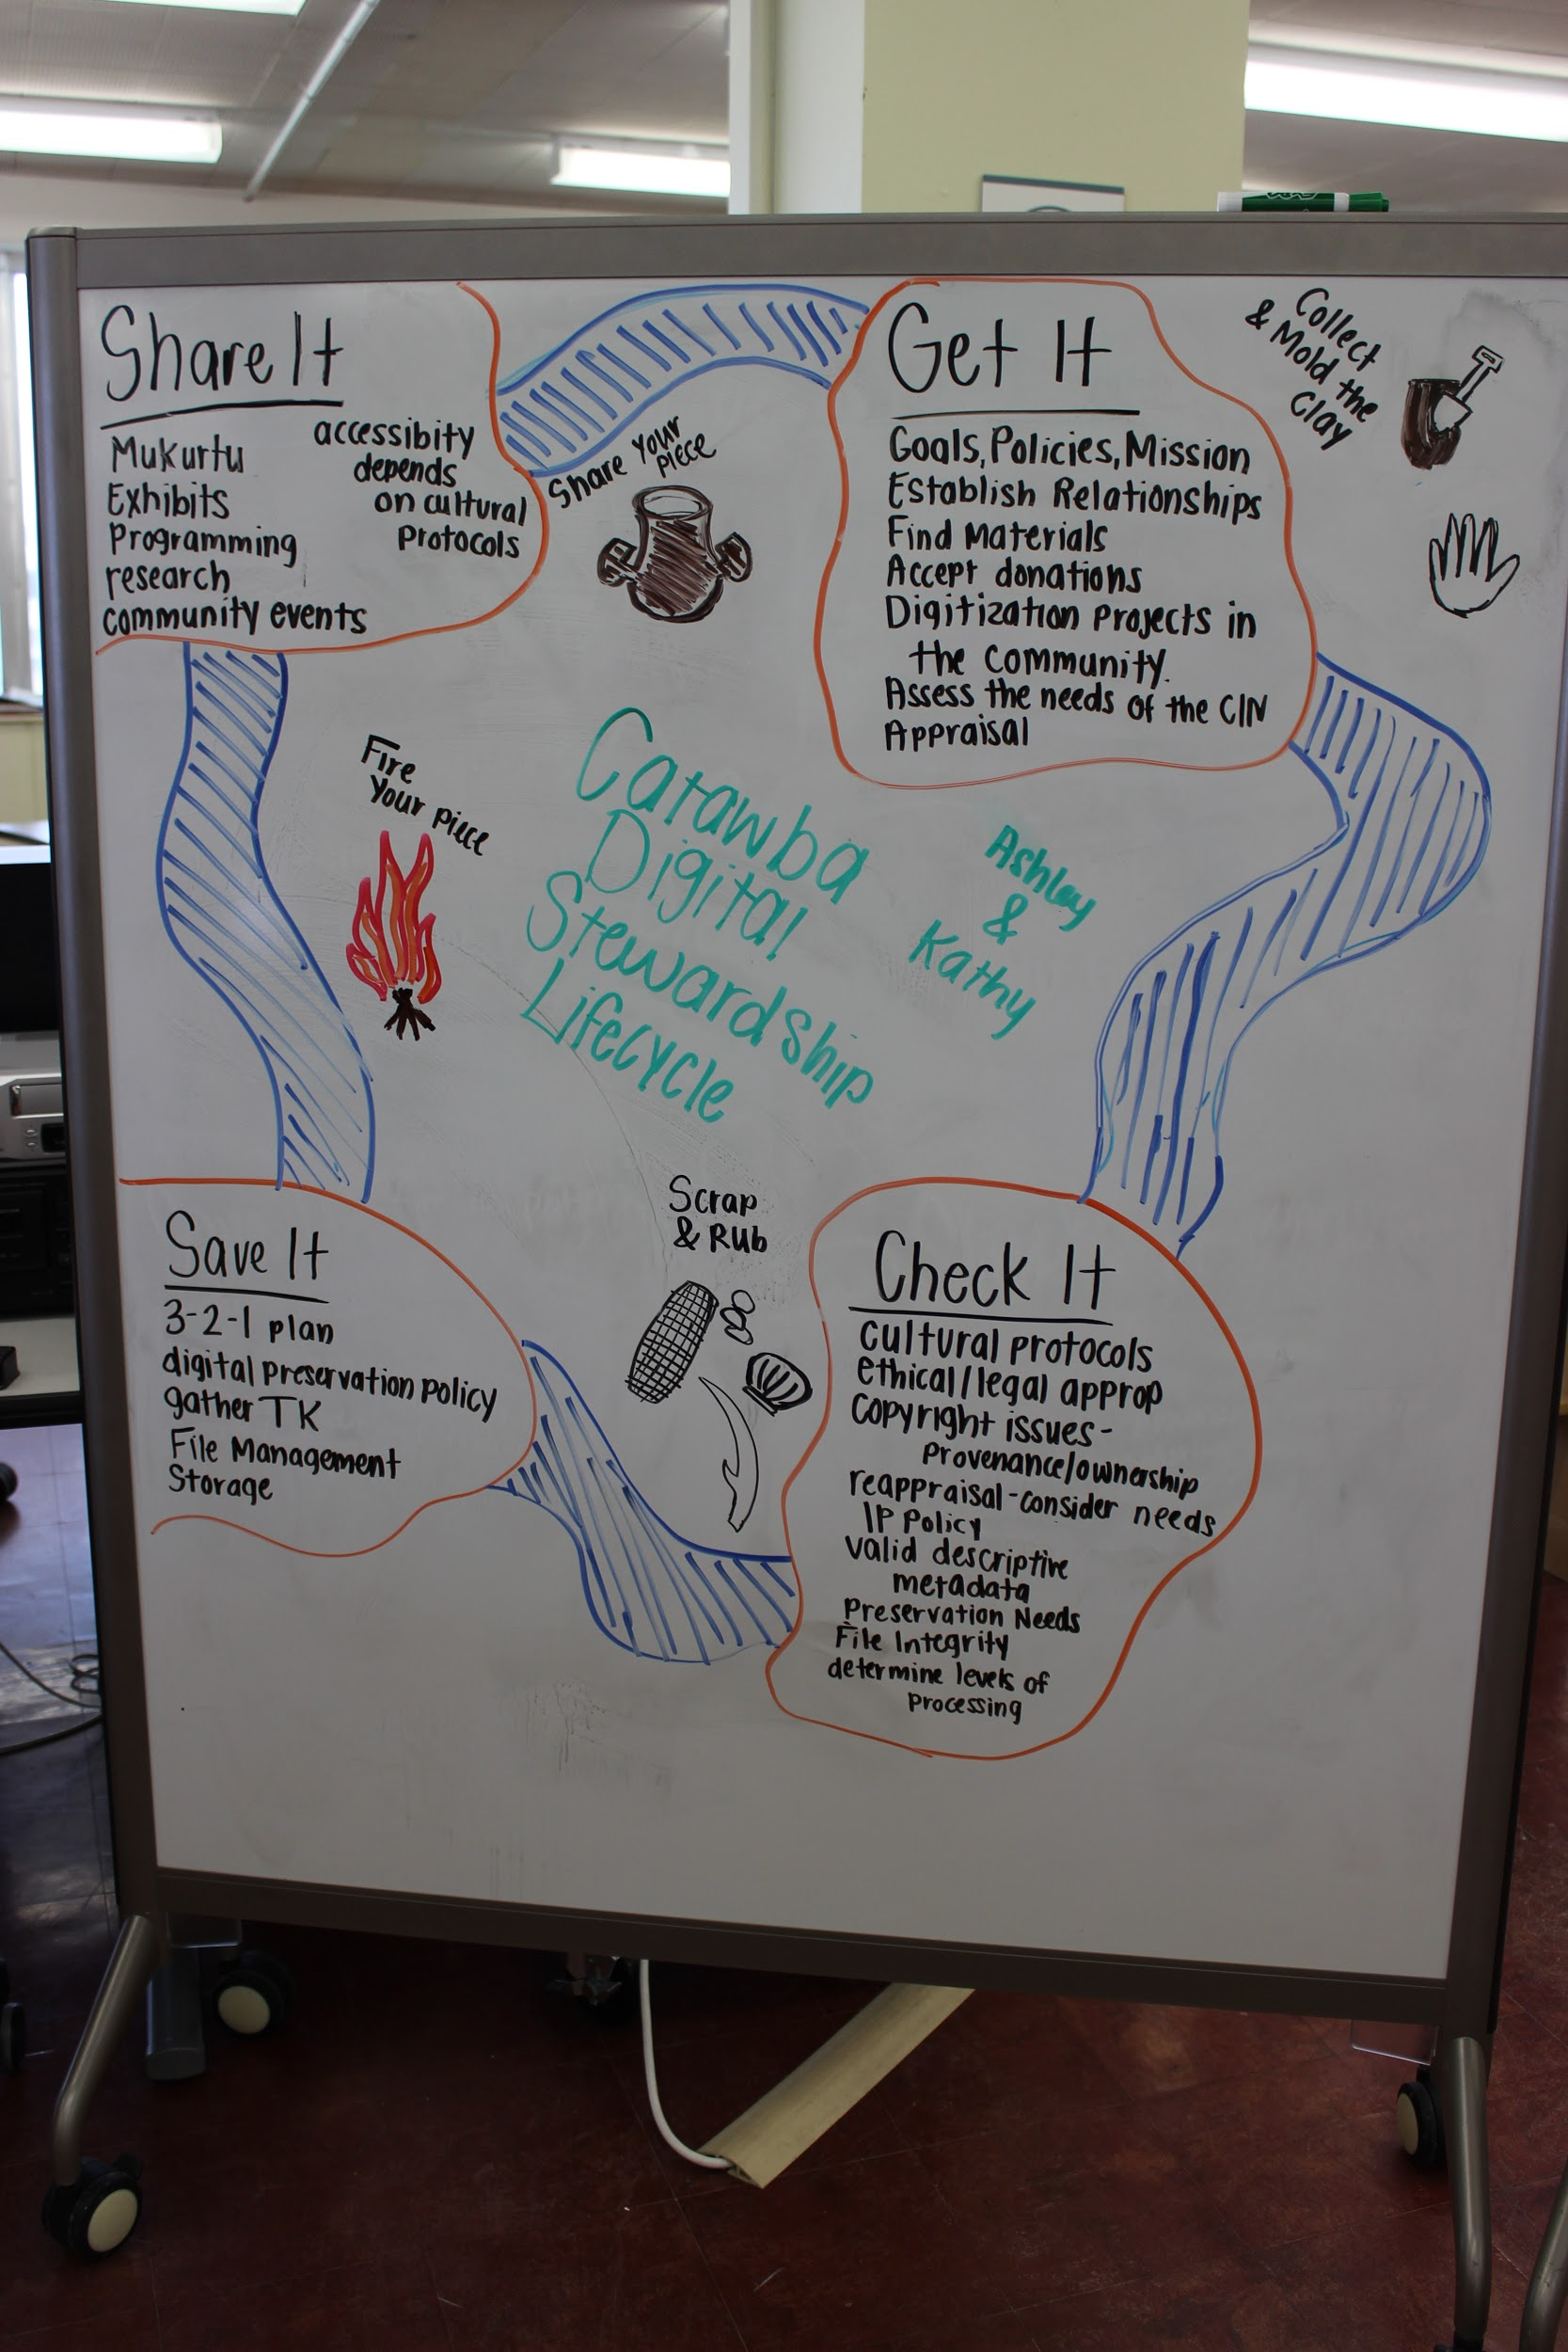 Share It
Mukurtu
Exhibits
Programming
research
community events
accessibity
depends
on cultural
Protocols
Share Your
Piece
Get It
Goals, Policies, Mission
Establish Relationships
Find Materials
Accept donations
Digitization Projects in
the Community.
Assess the needs of the CIN
Appraisal
Collect
& Mold the
Clay
Fire
Your piece
Catawba
Digital
Stewardship
Lifecycle
Ashley
&
Kathy
Save It
3-2-1 plan
digital preservation policy
gather TK
File Management
Storage
Scrap
& Rub
Check It
cultural protocols
ethical/legal approp
copyright issues-
Provenance/ownership
reappraisal-consider needs
IP Policy
valid descriptive
metadata
Preservation Needs
File Integrity
determine levels of
Processing